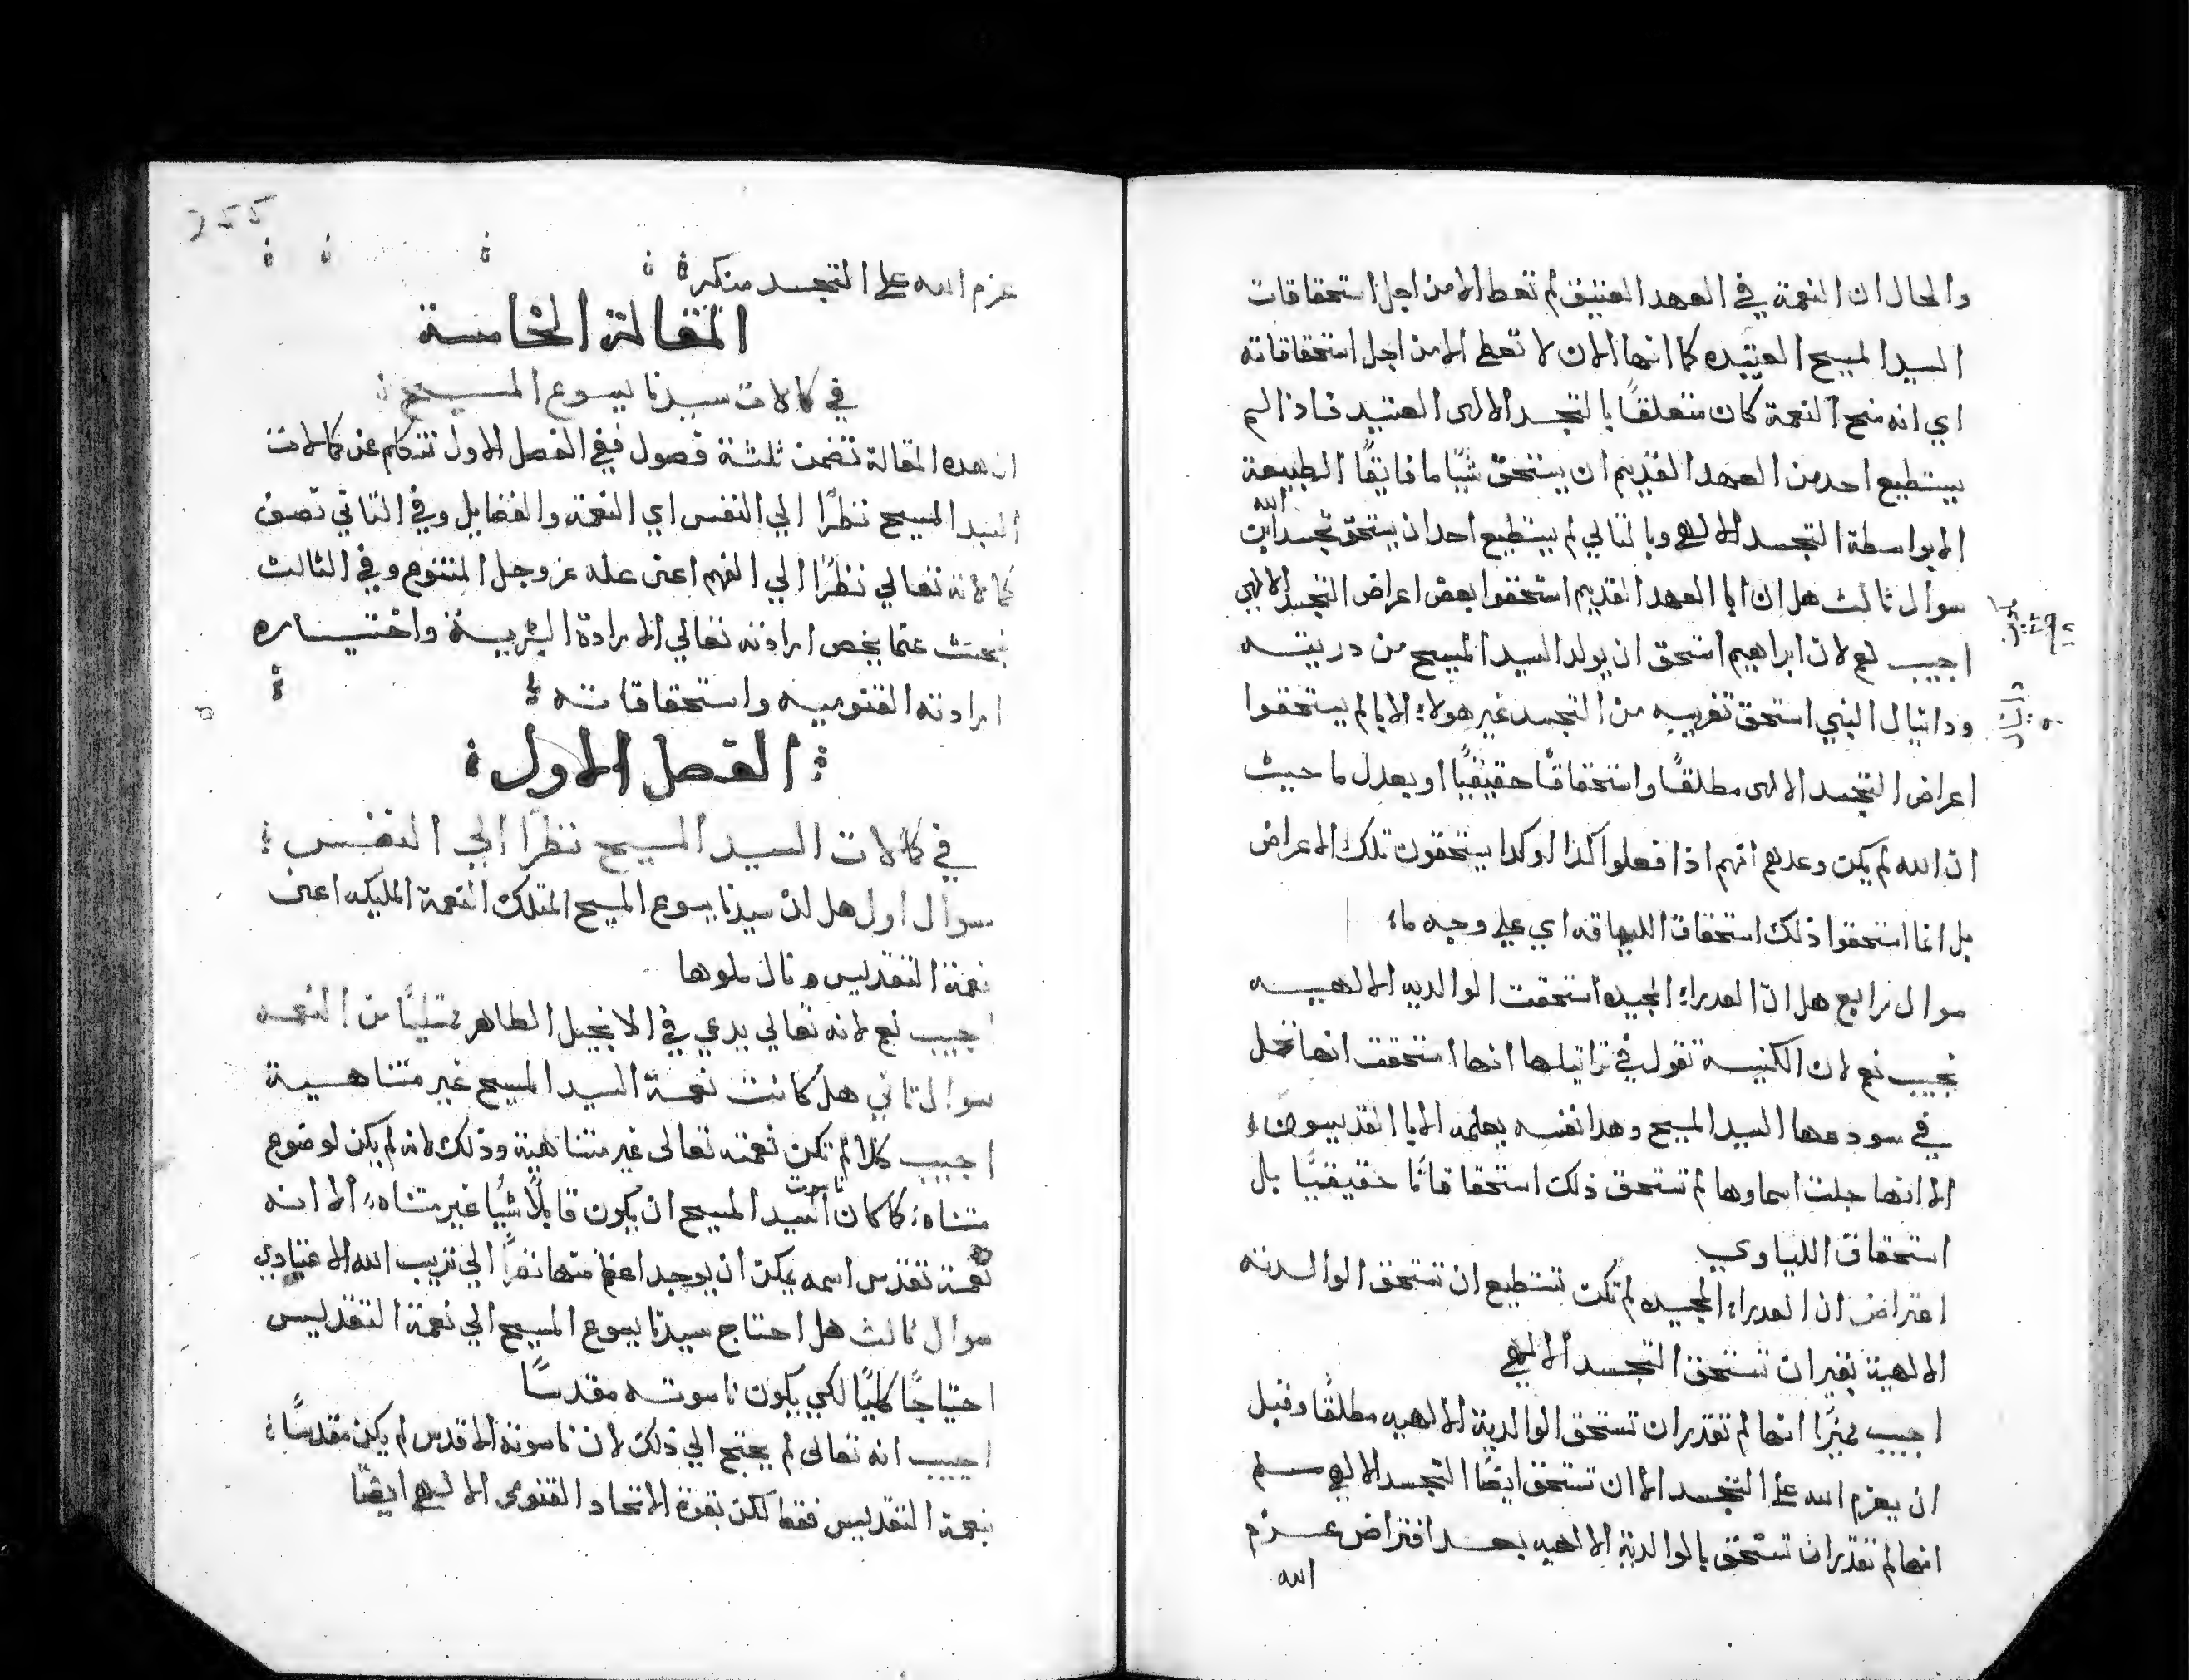 والحال ان النعمة في العهد العتيق لم تعط الا من اجل استحقاقات
السيد المسيح العتيده كما انها الان لا تعطي الا من اجل استحقاقاته
اي انه منح النعمة كان متعلقًا بالتجسد الالهى العتيد فاذا لم
يستطيع احد من العهد القديم ان يستحق شيًا ما فايقًا الطبيعة
الا بواسطة التجسد الالهي وبالتالي لم يستطيع احد ان يستحق تجسد ابن الله
سوال ثالث هل ان ابا العهد القديم استحقوا بعض اعراض التجسد الالهي
اجيب نعم لان ابراهيم استحق ان يولد السيد المسيح من دريته
ودانيال النبي استحق تقريبه من التجسد غير هولاء الابا لم يستحقوا
اعراض التجسد الالهى مطلقًا واستحقاقًا حقيقيًا او بعدل ما حيث
ان الله لم يكن وعدهم انهم اذا فعلوا كذا او كدا يستحقون تلك الاعراض
بل انما استحقوا ذلك استحقاق اللياقه اي علي وجه ما
سوال رابع هل ان العدراء المجيده استحقت الوالديه الالهيه
نجيب نعم لان الكنيسة تقول في تراتيلها انها استحقت انها تحمل
في سودعها السيد المسيح وهدا نفسه يعلمه الابا القديسون
الا انها جلت اسماوها لم تستحق ذلك استحقاقاتا حقيقيًا بل
استحقاق اللياوي
اعتراض ان العدراء المجيده لم تكن تستطيع ان تستحق الوالدته
الالهية بغير ان تستحق التجسد الالهي
اجيب مميزًا انها لم تقدر ان تستحق الوالدية الالهيه مطلقًا وقبل
ان يعزم الله علي التجسد الا ان تستحق ايضًا التجسد الالهي سلم
انها لم تقدر ان تستحق بالوالدية الالهيه بعد افتراض عزم
الله
255
عزم الله علي التجسد منكرة
المقالة الخامسة
في كمالات سيدنا يسوع المسيح
ان هده المقالة تتضمن ثلثة فصول ففي الفصل الاول نتكلم عن كمالات
السيد المسيح نظرًا الي النفس اي النعمة والفضايل وفي الثاني نصف
كمالاته تعالي نظرًا الي الفهم اعنى علمه عز وجل المتنوع وفي الثالث
نبحث عما يخص ارادته تعالي الارادة البشرية واختياره
ارادته القنوميه واستحقاقاته
الفصل الاول
في كمالات السيد المسيح نظرًا الي النفس
سوال اول هل ان سيدنا يسوع المسيح امتلك النعمة المليكه اعنى
نعمة التقديس ونال ملوها
اجيب نعم لانه تعالي يدعي في الانجيل الطاهر ممتليًا من النعمه
سوال تاني هل كانت نعمة السيد المسيح غير متناهية
اجيب كلا لم تكن نعمته تعالى غير متناهية وذلك لانه لم يكن لوضوع
متناه كما كان ناسوت السيد المسيح ان يكون قابلًا شيًا غير متناه الا انه
نعمة تقدس اسمه يمكن ان يوجد اعظم منها نظرًا الي ترتيب الله الاعتيادي
سوال ثالث هل احتاج سيدنا يسوع المسيح الي نعمة التقديس
احتياجًا كليًا لكي يكون ناسوته مقدسًا
اجيب انه تعالى لم يحتج الي ذلك لان ناسوته الاقدس لم يكن مقدسًا
بنعمة التقديس فقط لكن بقوة الاتحاد القنومى الالهي ايضًا